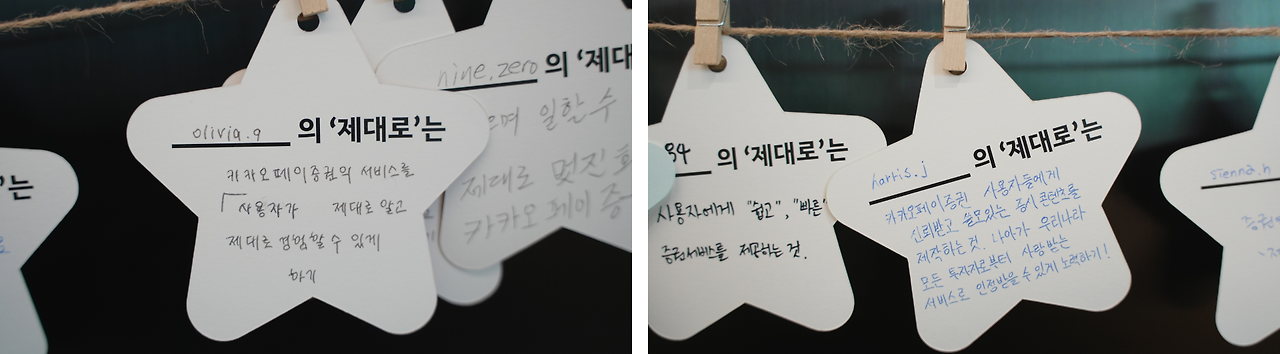 olivia.q 의 '제대로'는
카카오페이증권의 서비스를
사용자가 제대로 알고
제대로 경험할 수 있게
하기
nine.zero 의 '제대
으며 일할 수
제대로 멋진
카카오페이 증
'는
84 의 '제대로'는
사용자에게 "쉽고", "빠른"
증권서비스를 제공하는 것.
harris.j 의 '제대로'는
카카오페이증권 사용자들에게
신뢰받고 쓸모있는 증시 콘텐츠를
제작하는 것. 나아가 우리나라
모든 투자자로부터 사랑받는
서비스로 인정받을 수 있게 노력하기!
sienna.h
증권